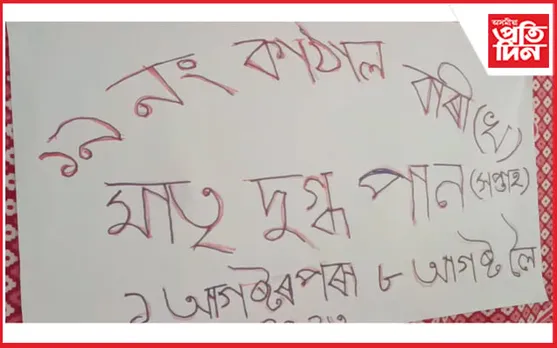 অসমীয়া
প্ৰতি
দিন
১নি নং কাঠাল বাৰী (খ)
মাতৃ দুগ্ধ পান (সপ্তাহ)
১ আগষ্টৰপৰা ৮ আগষ্ট লৈ